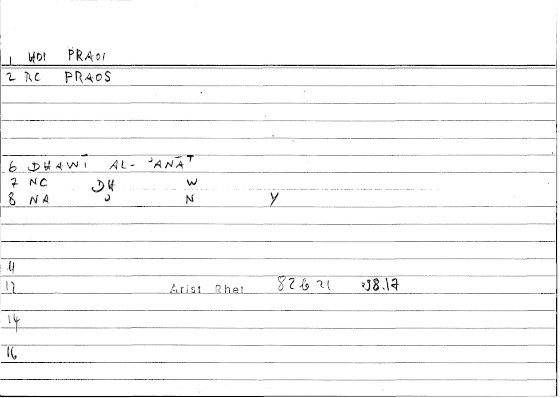 1 HOI PRAOI
2 RC PRAOS
6 DHAWĪ AL- ʾANĀT
7 NC DH W
8 NA ʾ N Y
11
12 Arist Rhet 82b21 238.17
14
16